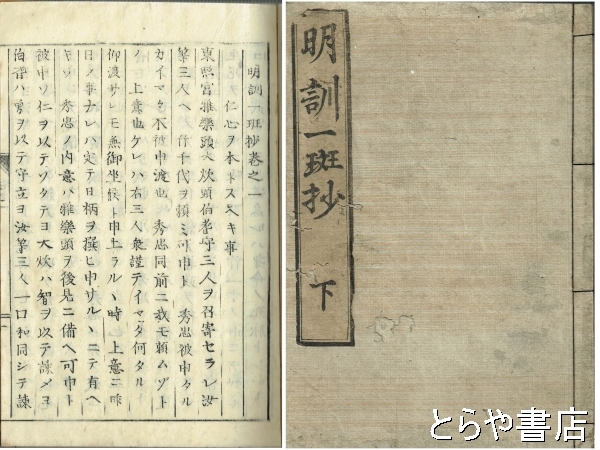 明訓一斑抄
下
明訓一斑抄巻之一
仁心ヲ本トスヘキ事
東照宮雅樂頭大炊頭伯耆守三人ヲ召寄セラレ汝
等三人ヘ竹千代ヲ頼ミ可申ト秀忠被申タル
カイマタ不被申渡也秀忠同前ニ我モ頼ムゾト
上意也ケレハ右三人衆謹テイマダ何タル
仰渡サレモ無御坐候ト申上ラルヽ時上意ニ昨
日ノ事ナレハ定テ日柄ヲ撰ヒ申サルヽニテ有ヘ
秀忠ノ内意ハ雅樂頭ヲ後見ニ備ヘ可申ト
被申ソ仁ヲ以テソタテヨ大炊ハ智ヲ以テ諫メヨ
伯耆ハ勇ヲ以テ守立ヨ汝等三人一口和同シテ諫
とらや書店